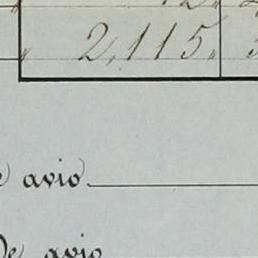 2,115.
de avio
De avio